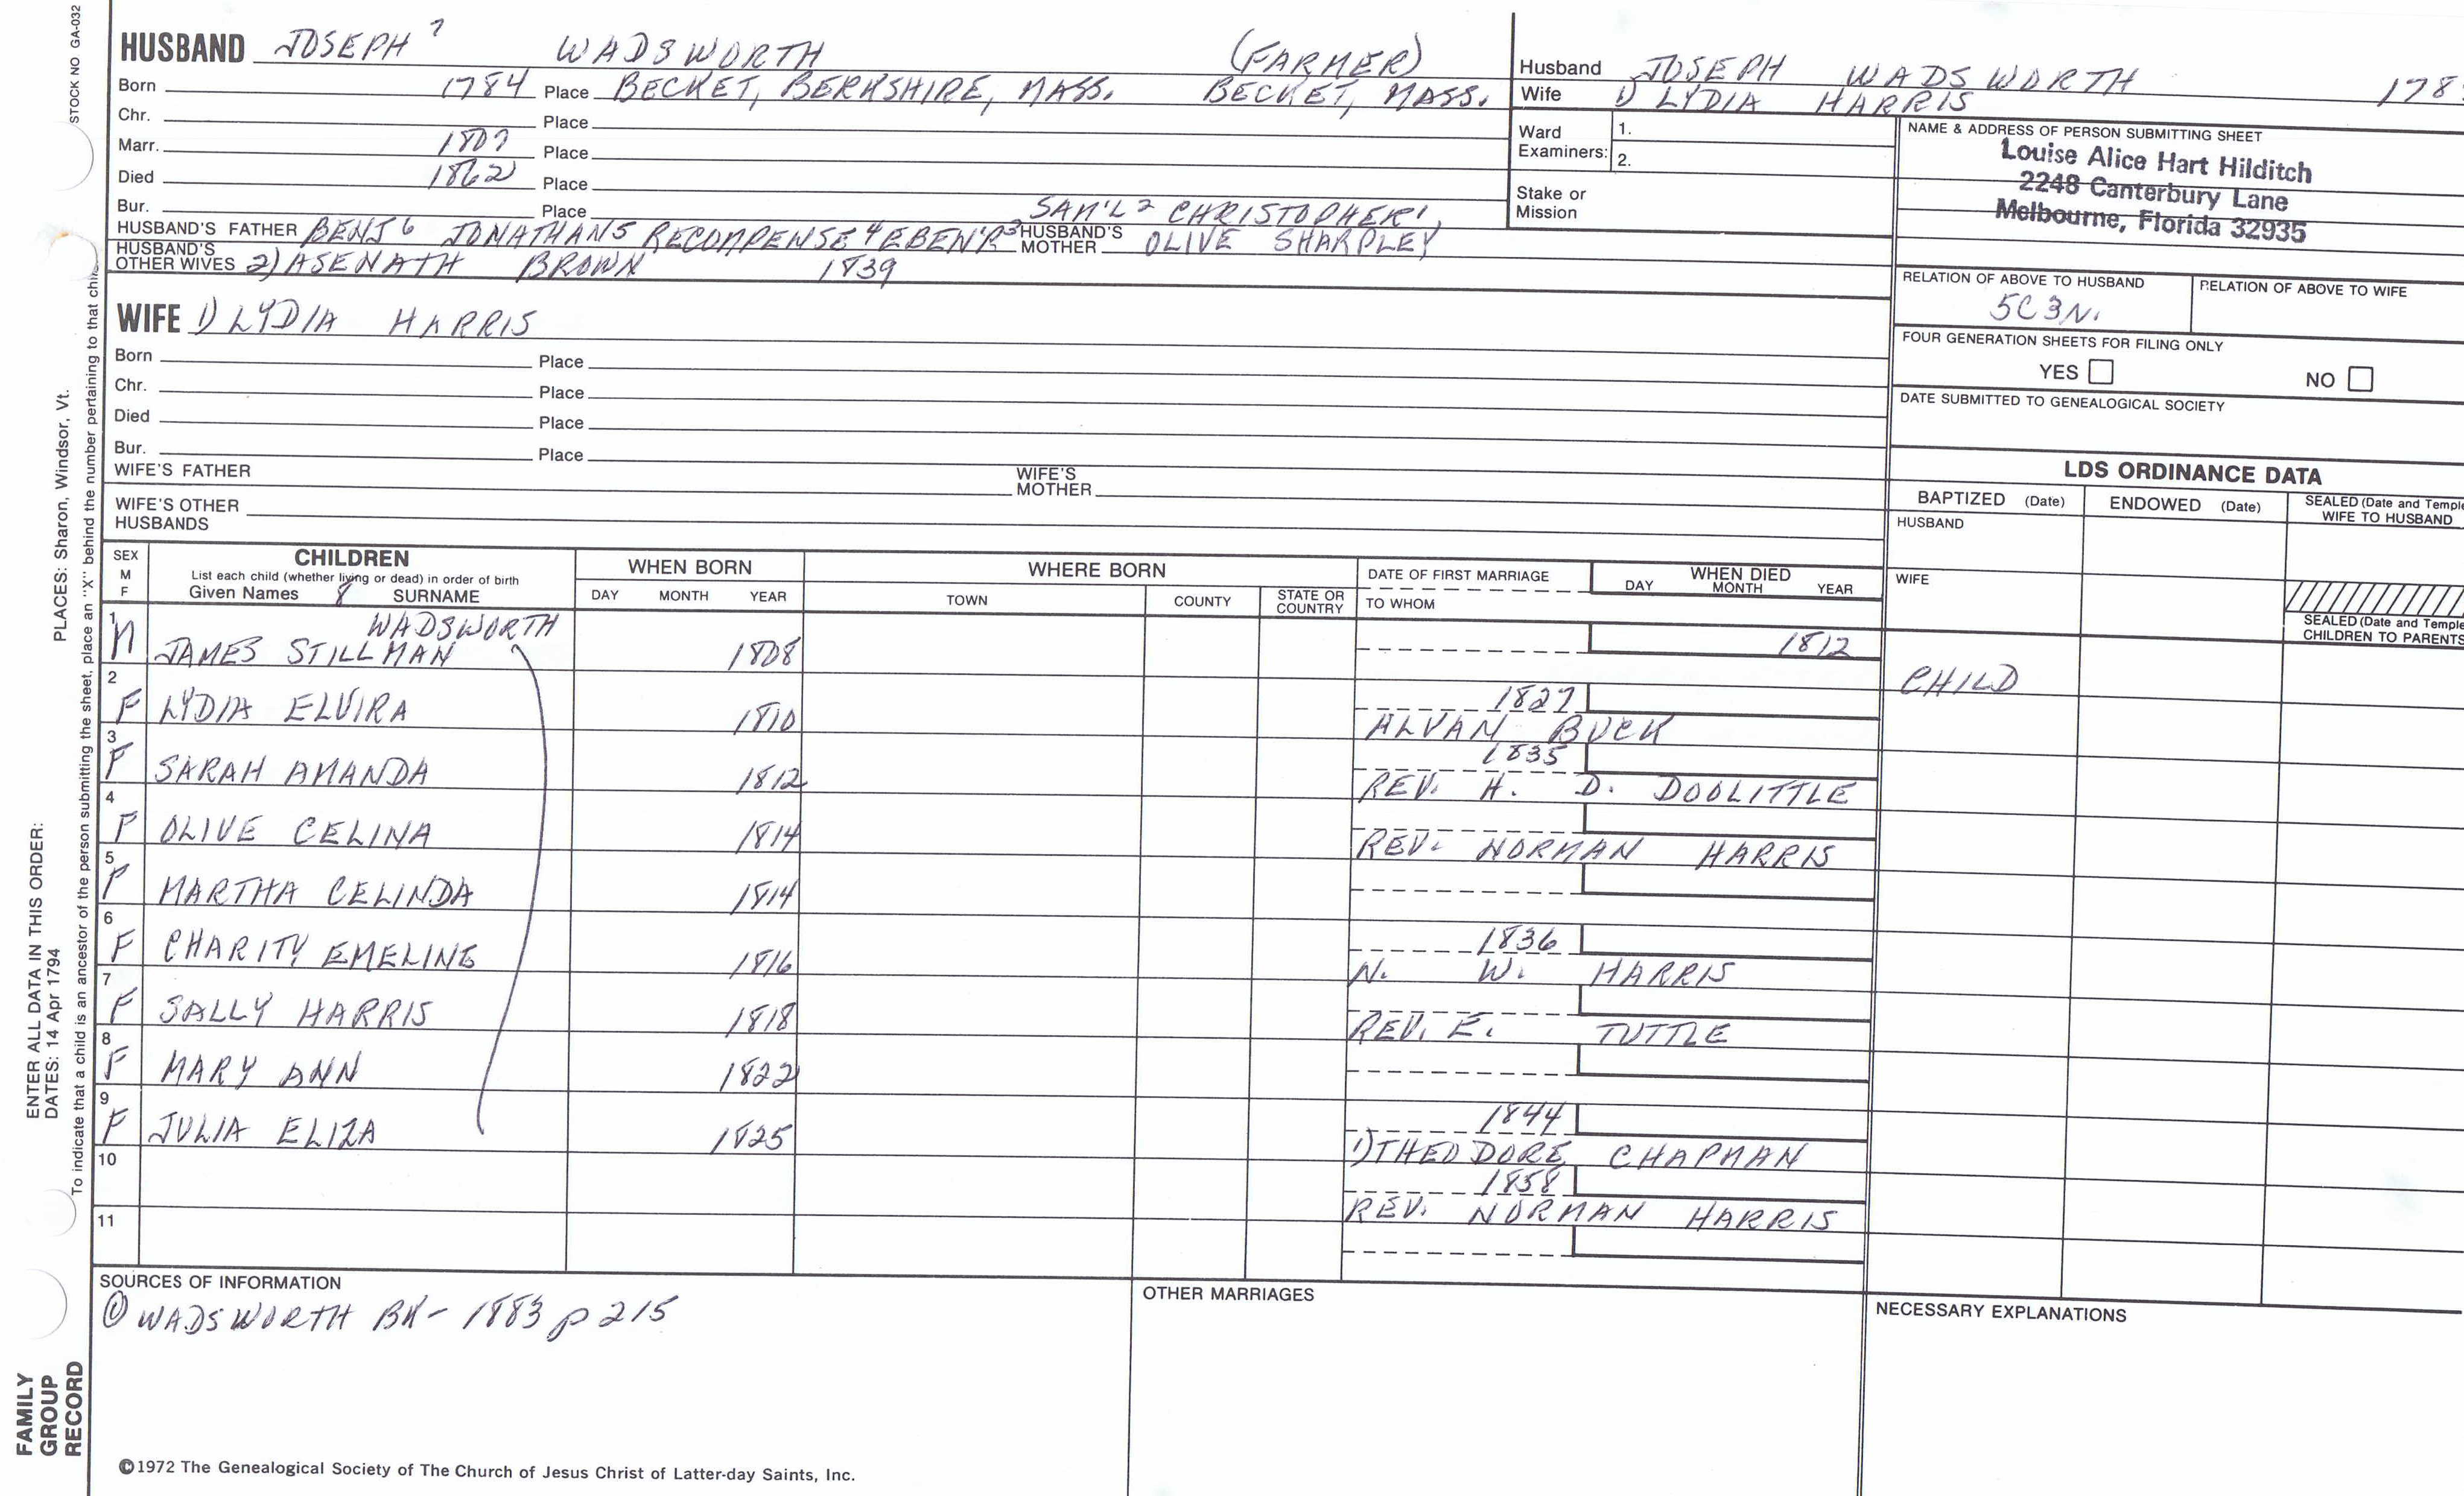 STOCK NO GA-032
HUSBAND JOSEPH 7 WADSWORTH (FARMER)
Born 1784 Place BECKET, BERKSHIRE, MASS. BECKET, MASS.
Chr. Place
Marr. 1807 Place
Died 1862 Place
Bur. Place SAM'L 2 CHRISTOPHER 1,
HUSBAND'S FATHER BENJ 6 JONATHAN 5 RECOMPENSE 4 EBEN'R 3 HUSBAND'S MOTHER OLIVE SHARPLEY
HUSBAND'S OTHER WIVES 2) ASENATH BROWN 1839
WIFE 1) LYDIA HARRIS
Born Place
Chr. Place
Died Place
Bur. Place
WIFE'S FATHER WIFE'S MOTHER
WIFE'S OTHER HUSBANDS
Husband JOSEPH WADSWORTH 178
Wife 1) LYDIA HARRIS
Ward Examiners: 1.
2.
Stake or Mission
NAME & ADDRESS OF PERSON SUBMITTING SHEET
Louise Alice Hart Hilditch
2248 Canterbury Lane
Melbourne, Florida 32935
RELATION OF ABOVE TO HUSBAND RELATION OF ABOVE TO WIFE
5C3N.
FOUR GENERATION SHEETS FOR FILING ONLY
YES NO
DATE SUBMITTED TO GENEALOGICAL SOCIETY
LDS ORDINANCE DATA
BAPTIZED (Date) ENDOWED (Date) SEALED (Date and Temple
WIFE TO HUSBAND
HUSBAND
WIFE
SEALED (Date and Temple
CHILDREN TO PARENTS
CHILD
SEX M F CHILDREN WHEN BORN WHERE BORN DATE OF FIRST MARRIAGE WHEN DIED
List each child (whether living or dead) in order of birth
Given Names 8 SURNAME DAY MONTH YEAR TOWN COUNTY STATE OR COUNTRY TO WHOM DAY MONTH YEAR
WADSWORTH
1 M JAMES STILLMAN 1808 1812
2 F LYDIA ELVIRA 1810 1827
ALVAN BUCK
3 F SARAH AMANDA 1812 1835
REV. H. D. DOOLITTLE
4 F OLIVE CELINA 1814
REV. NORMAN HARRIS
5 F MARTHA CELINDA 1814
6 F CHARITY EMELINE 1816 1836
N. W. HARRIS
7 F SALLY HARRIS 1818
REV. E. TUTTLE
8 F MARY ANN 1822
9 F JULIA ELIZA 1825 1844
1) THEODORE CHAPMAN
10 1858
REV. NORMAN HARRIS
11
SOURCES OF INFORMATION
① WADSWORTH BK- 1883 p 215
OTHER MARRIAGES
NECESSARY EXPLANATIONS
©1972 The Genealogical Society of The Church of Jesus Christ of Latter-day Saints, Inc.
FAMILY
GROUP
RECORD
ENTER ALL DATA IN THIS ORDER:
DATES: 14 Apr 1794 PLACES: Sharon, Windsor, Vt.
To indicate that a child is an ancestor of the person submitting the sheet, place an "X" behind the number pertaining to that chil